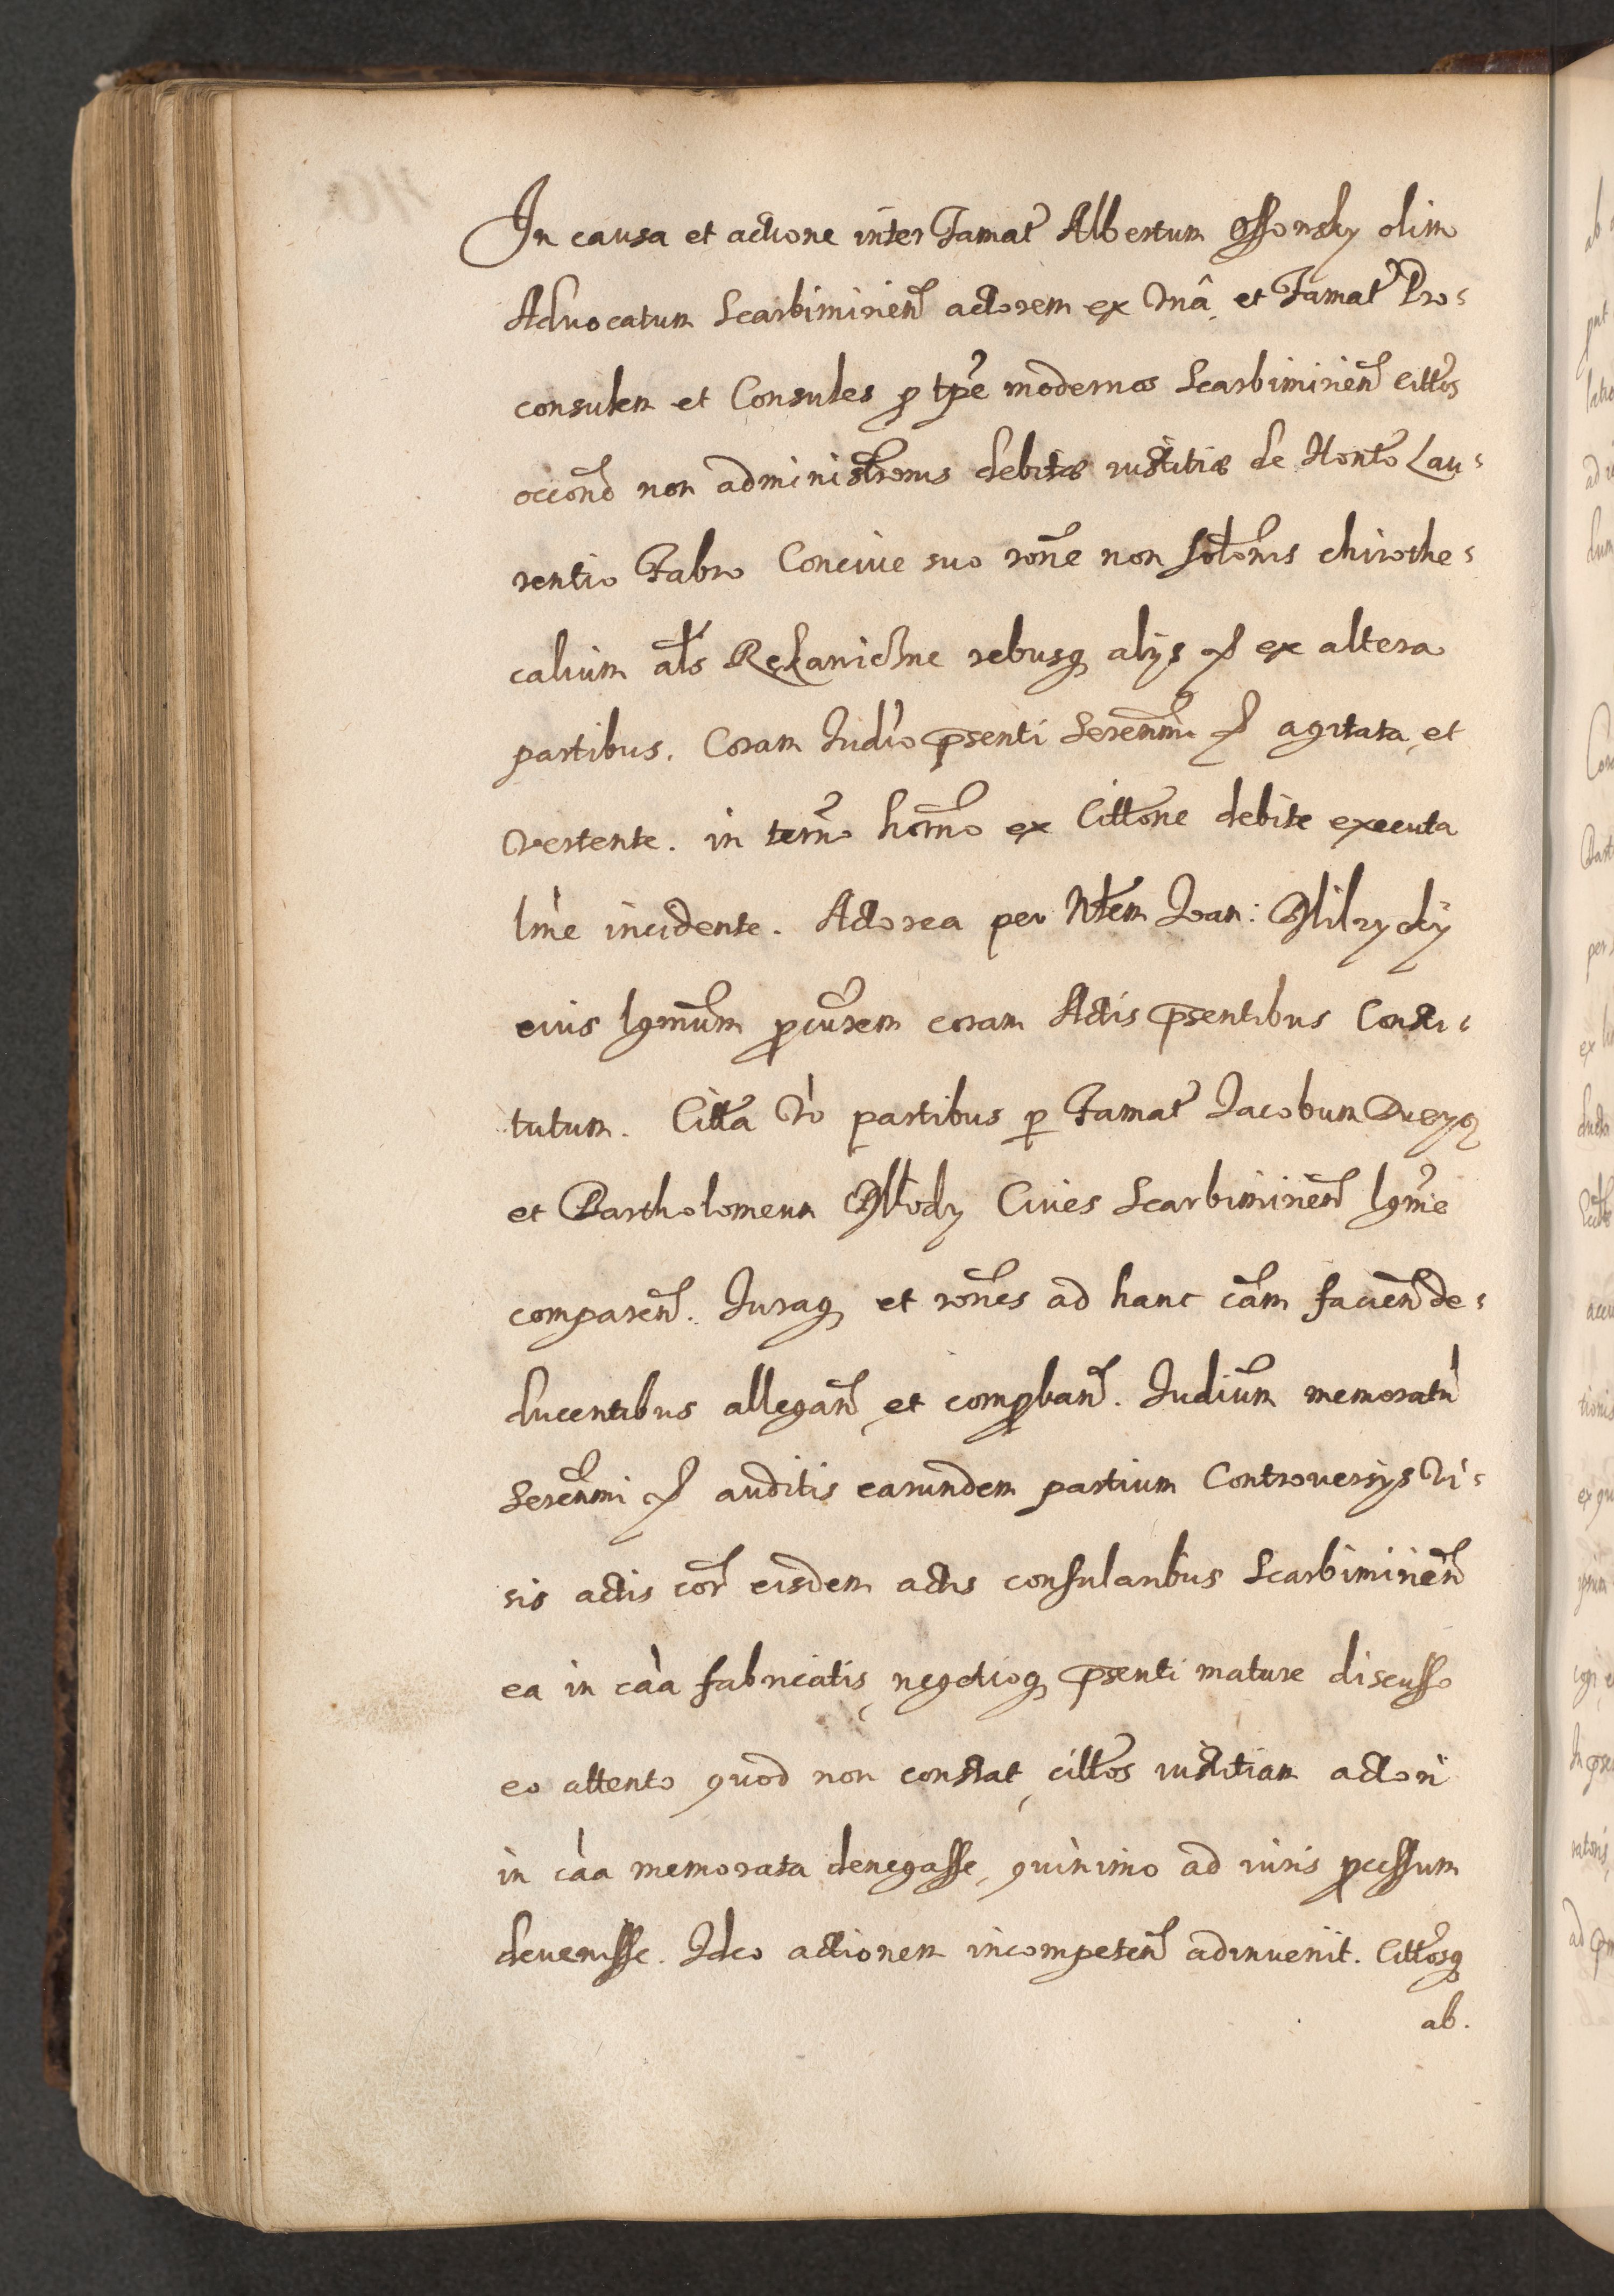 In causa et actione inter Famat Albertum Ossonsky olim
Advocatum Scarbimirien actorem ex Vna, et Famat Pro=
consulem et Consules p tpe modernos Scarbimirien Cittos
occone non administronis debitae iustitiae de Honto Lau=
rentio Fabro Concive suo rone non solonis chirothe=
calium als Rękawiczne rebusq alijs ex altera
partibus. Coram Iudio psenti Serenmi agitata, et
vertente. in termo horno ex Cittone debite executa
lme incidente. Actorea per Nblem Ioan: Milzycky
eius lgmum pcurem coram Actis psentibus Consti=
tutum. Citta Vo partibus p Famat Iacobum
et Bartholomeum Młody Cives Scarbimirien lgme
comparen. Iuraq et rones ad hanc cam facien de=
ducentibus allegan et compban. Iudium memoratu
Serenmi auditis earundem partium Controversijs Vi=
sis actis cor eisdem actis consularibus Scarbimirien
ea in caa fabricatis, negotioq psenti mature discusso
eo attento quod non constat, cittos iustitiam actori
in caa memorata denegasse, quinimo ad iuris pcessum
devenisse. Ideo actionem incompeten adinvenit. Cittosq
ab.